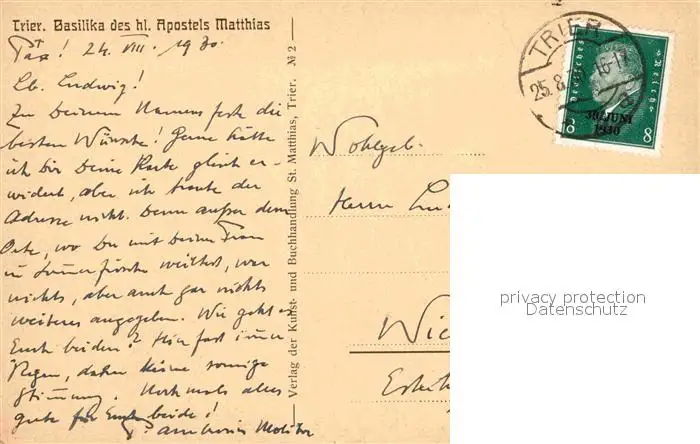 Trier. Basilika des hl. Apostels Matthias
Pax! 24. VIII. 1930.
Lb. Ludwig!
Zu Deinem Namensfeste die
besten Wünsche! Gerne hätte
ich Dir Deine Karte gleich er-
widert, aber ich traute der
Adresse nicht. Denn außer dem
Orte, wo Du mit Deiner Frau
in Sommerfrische weiltest, war
nichts, aber auch gar nichts
weiteres angegeben. Wie geht es
Euch beiden? Hier fast immer
Regen, daher keine sonnige
Stimmung. Nochmals alles
gute für Euch beide!
Ambrosius Molitor
Verlag der Kunst- und Buchhandlung St. Matthias, Trier. № 2
TRIER
25.8. 16-17
Deutsches Reich
30. JUNI
1930
8 8
Wohlgeb.
Herrn Lu
Wie
privacy protection
Datenschutz